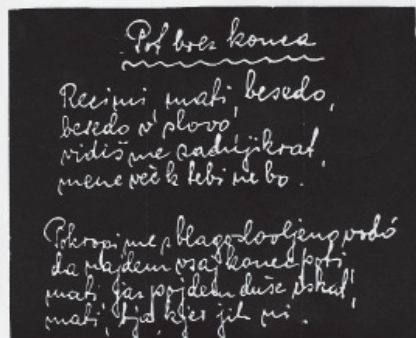 Pot brez konca
Reci mi, mati, besedo,
besedo v slovo,
vidiš me zadnjikrat,
mene več k tebi ne bo.
Pokropi me z blagoslovljeno vodó
da najdem vsaj konec poti,
mati, jaz pojdem duše iskat,
mati, tja, kjer jih ni.